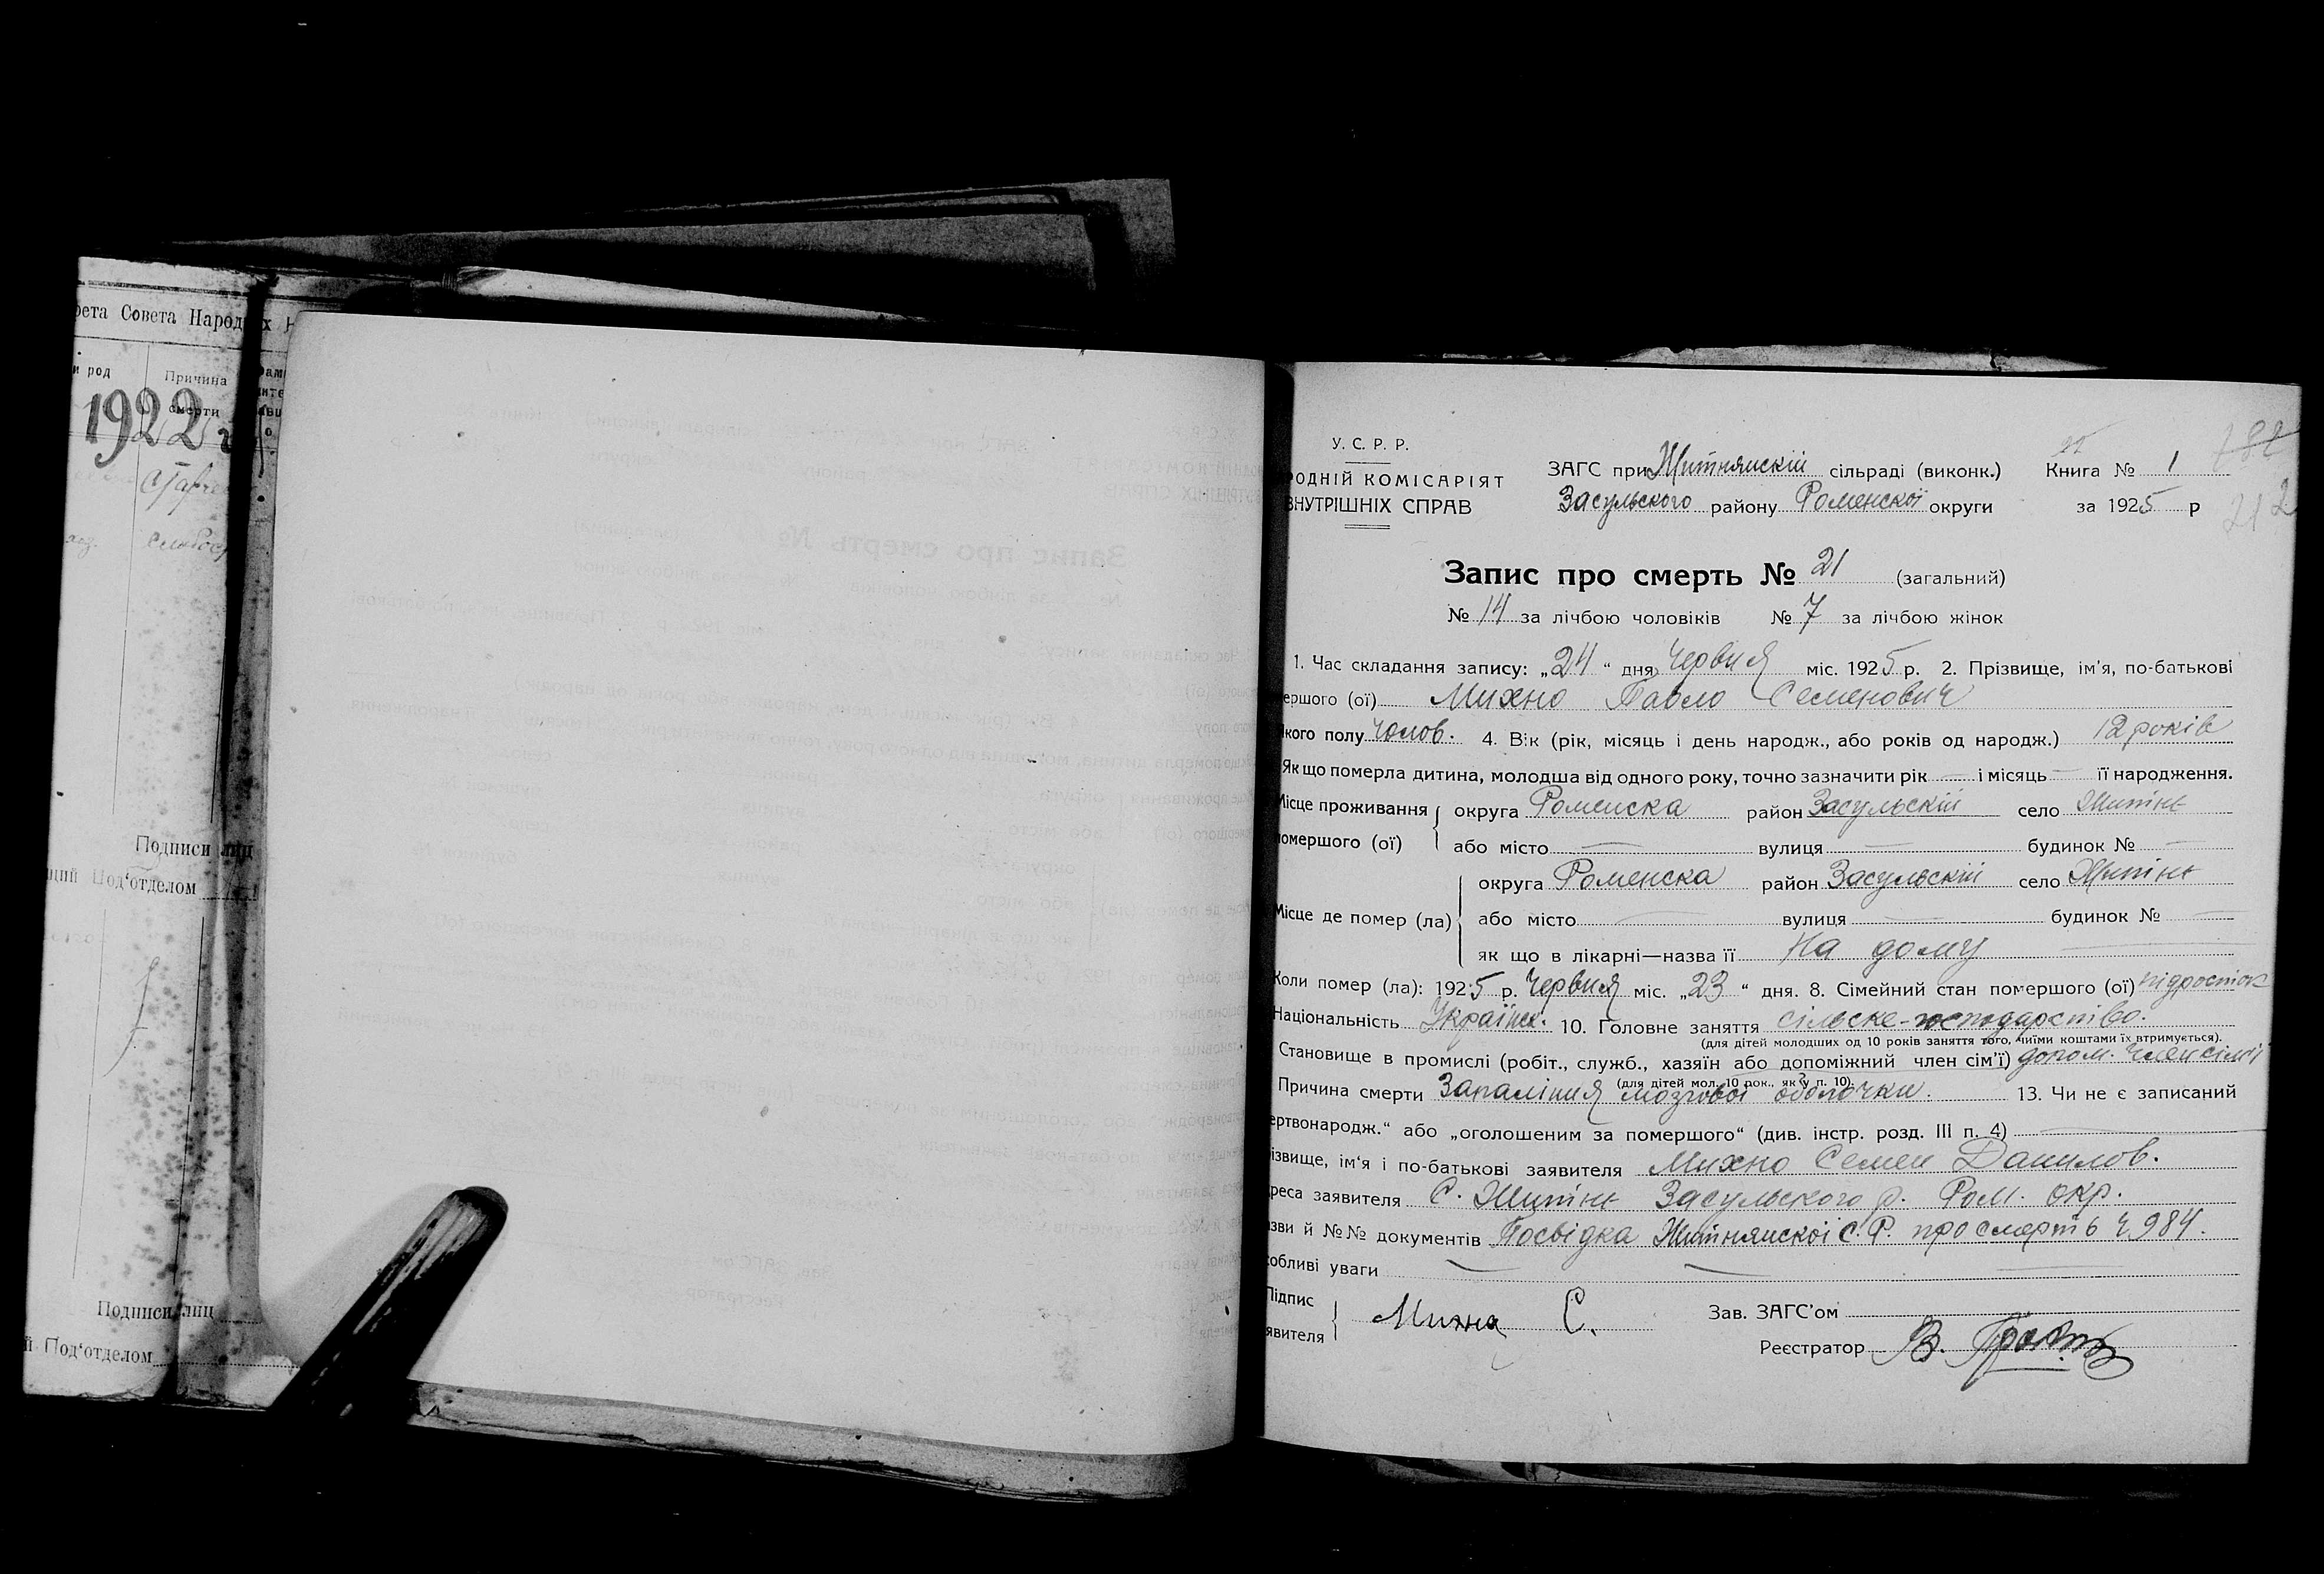 рета Совета Народ
и род
Причина
смерти
1922 г
Подписи лиц
щий Под‘отделом
Подписи лиц
й Под‘отделом
У. С. Р. Р.
РОДНІЙ КОМІСАРІЯТ
ВНУТРІШНІХ СПРАВ
ЗАГС при Житнянскій сільраді (виконк.)
Засульского району Роменскої округи
Книга № 1
за 1925 р
782
212
Запис про смерть № 21 (загальний)
№ 14 за лічбою чоловіків № 7 за лічбою жінок
1. Час складання запису: „24“ дня Червня міс. 1925 р. 2. Прізвище, ім’я, по-батькові
ершого (ої) Михно Павло Семенович
якого полу Чолов. 4. Вік (рік, місяць і день народж., або років од народж.) 12 років
Якщо померла дитина, молодша від одного року, точно зазначити рік — і місяць — її народження.
Місце проживання округа Роменска район Засульскій село Житнє
помершого (ої) або місто — вулиця — будинок № —
округа Роменска район Засульскій село Житнє
Місце де помер (ла) або місто — вулиця — будинок № —
як що в лікарні—назва її На дому
Коли помер (ла): 1925 р. Червня міс. „23“ дня. 8. Сімейний стан помершого (ої) підросток
Національність Україн. 10. Головне заняття сільске-господарство.
(для дітей молодших од 10 років заняття того, чиїми коштами їх втримується).
Становище в промислі (робіт., служб., хазяїн або допоміжний член сім’ї) допом. член сім'ї
(для дітей мол. 10 рок., як у п. 10).
Причина смерти Запаління мозгової оболочки. 13. Чи не є записаний
ертвонародж.“ або „оголошеним за помершого“ (див. інстр. розд. III п. 4) —
ізвище, ім‘я і по-батькові заявителя Михно Семен Данилов.
реса заявителя С. Житнє Засульского р. Ром. окр.
зви й №№ документів Посвідка Житнянскої С. Р. про смерть ч 984.
собливі уваги — — —
Підпис
явителя Михна С.
Зав. ЗАГС’ом
Реєстратор В.